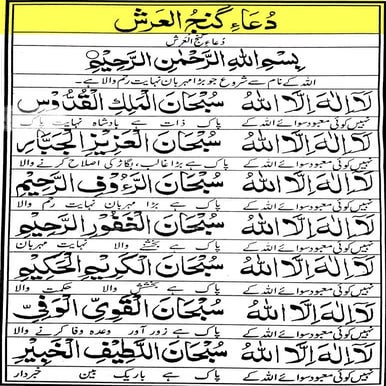 دُعَاءِ گنجُ العرش
دُعاءِ گنج العرش
بِسْمِ اللهِ الرَّحْمٰنِ الرَّحِيْمِ
اللہ کے نام سے شروع جو بڑا مہربان نہایت رحم والا ہے۔
لَآ اِلٰهَ اِلَّا اللهُ سُبْحَانَ الْمَلِكِ الْقُدُّوْسِ
نہیں کوئی معبود سوائے اللہ کے پاک ذات ہے بادشاہ نہایت پاک
لَآ اِلٰهَ اِلَّا اللهُ سُبْحَانَ الْعَزِيْزِ الْجَبَّارِ
نہیں کوئی معبود سوائے اللہ کے پاک ہے بڑا غالب، بگاڑ کی اصلاح کرنے والا
لَآ اِلٰهَ اِلَّا اللهُ سُبْحَانَ الرَّءُوْفِ الرَّحِيْمِ
نہیں کوئی معبود سوائے اللہ کے پاک ہے بڑا مہربان نہایت رحم والا
لَآ اِلٰهَ اِلَّا اللهُ سُبْحَانَ الْغَفُوْرِ الرَّحِيْمِ
نہیں کوئی معبود سوائے اللہ کے پاک ہے بخشنے والا نہایت مہربان
لَآ اِلٰهَ اِلَّا اللهُ سُبْحَانَ الْكَرِيْمِ الْحَكِيْمِ
نہیں کوئی معبود سوائے اللہ کے پاک ہے بخشش والا حکمت والا
لَآ اِلٰهَ اِلَّا اللهُ سُبْحَانَ الْقَوِيِّ الْوَفِيِّ
نہیں کوئی معبود سوائے اللہ کے پاک ہے زور آور وعدہ وفا کرنے والا
لَآ اِلٰهَ اِلَّا اللهُ سُبْحَانَ اللَّطِيْفِ الْخَبِيْرِ
نہیں کوئی معبود سوائے اللہ کے پاک ہے باریک بین خبردار